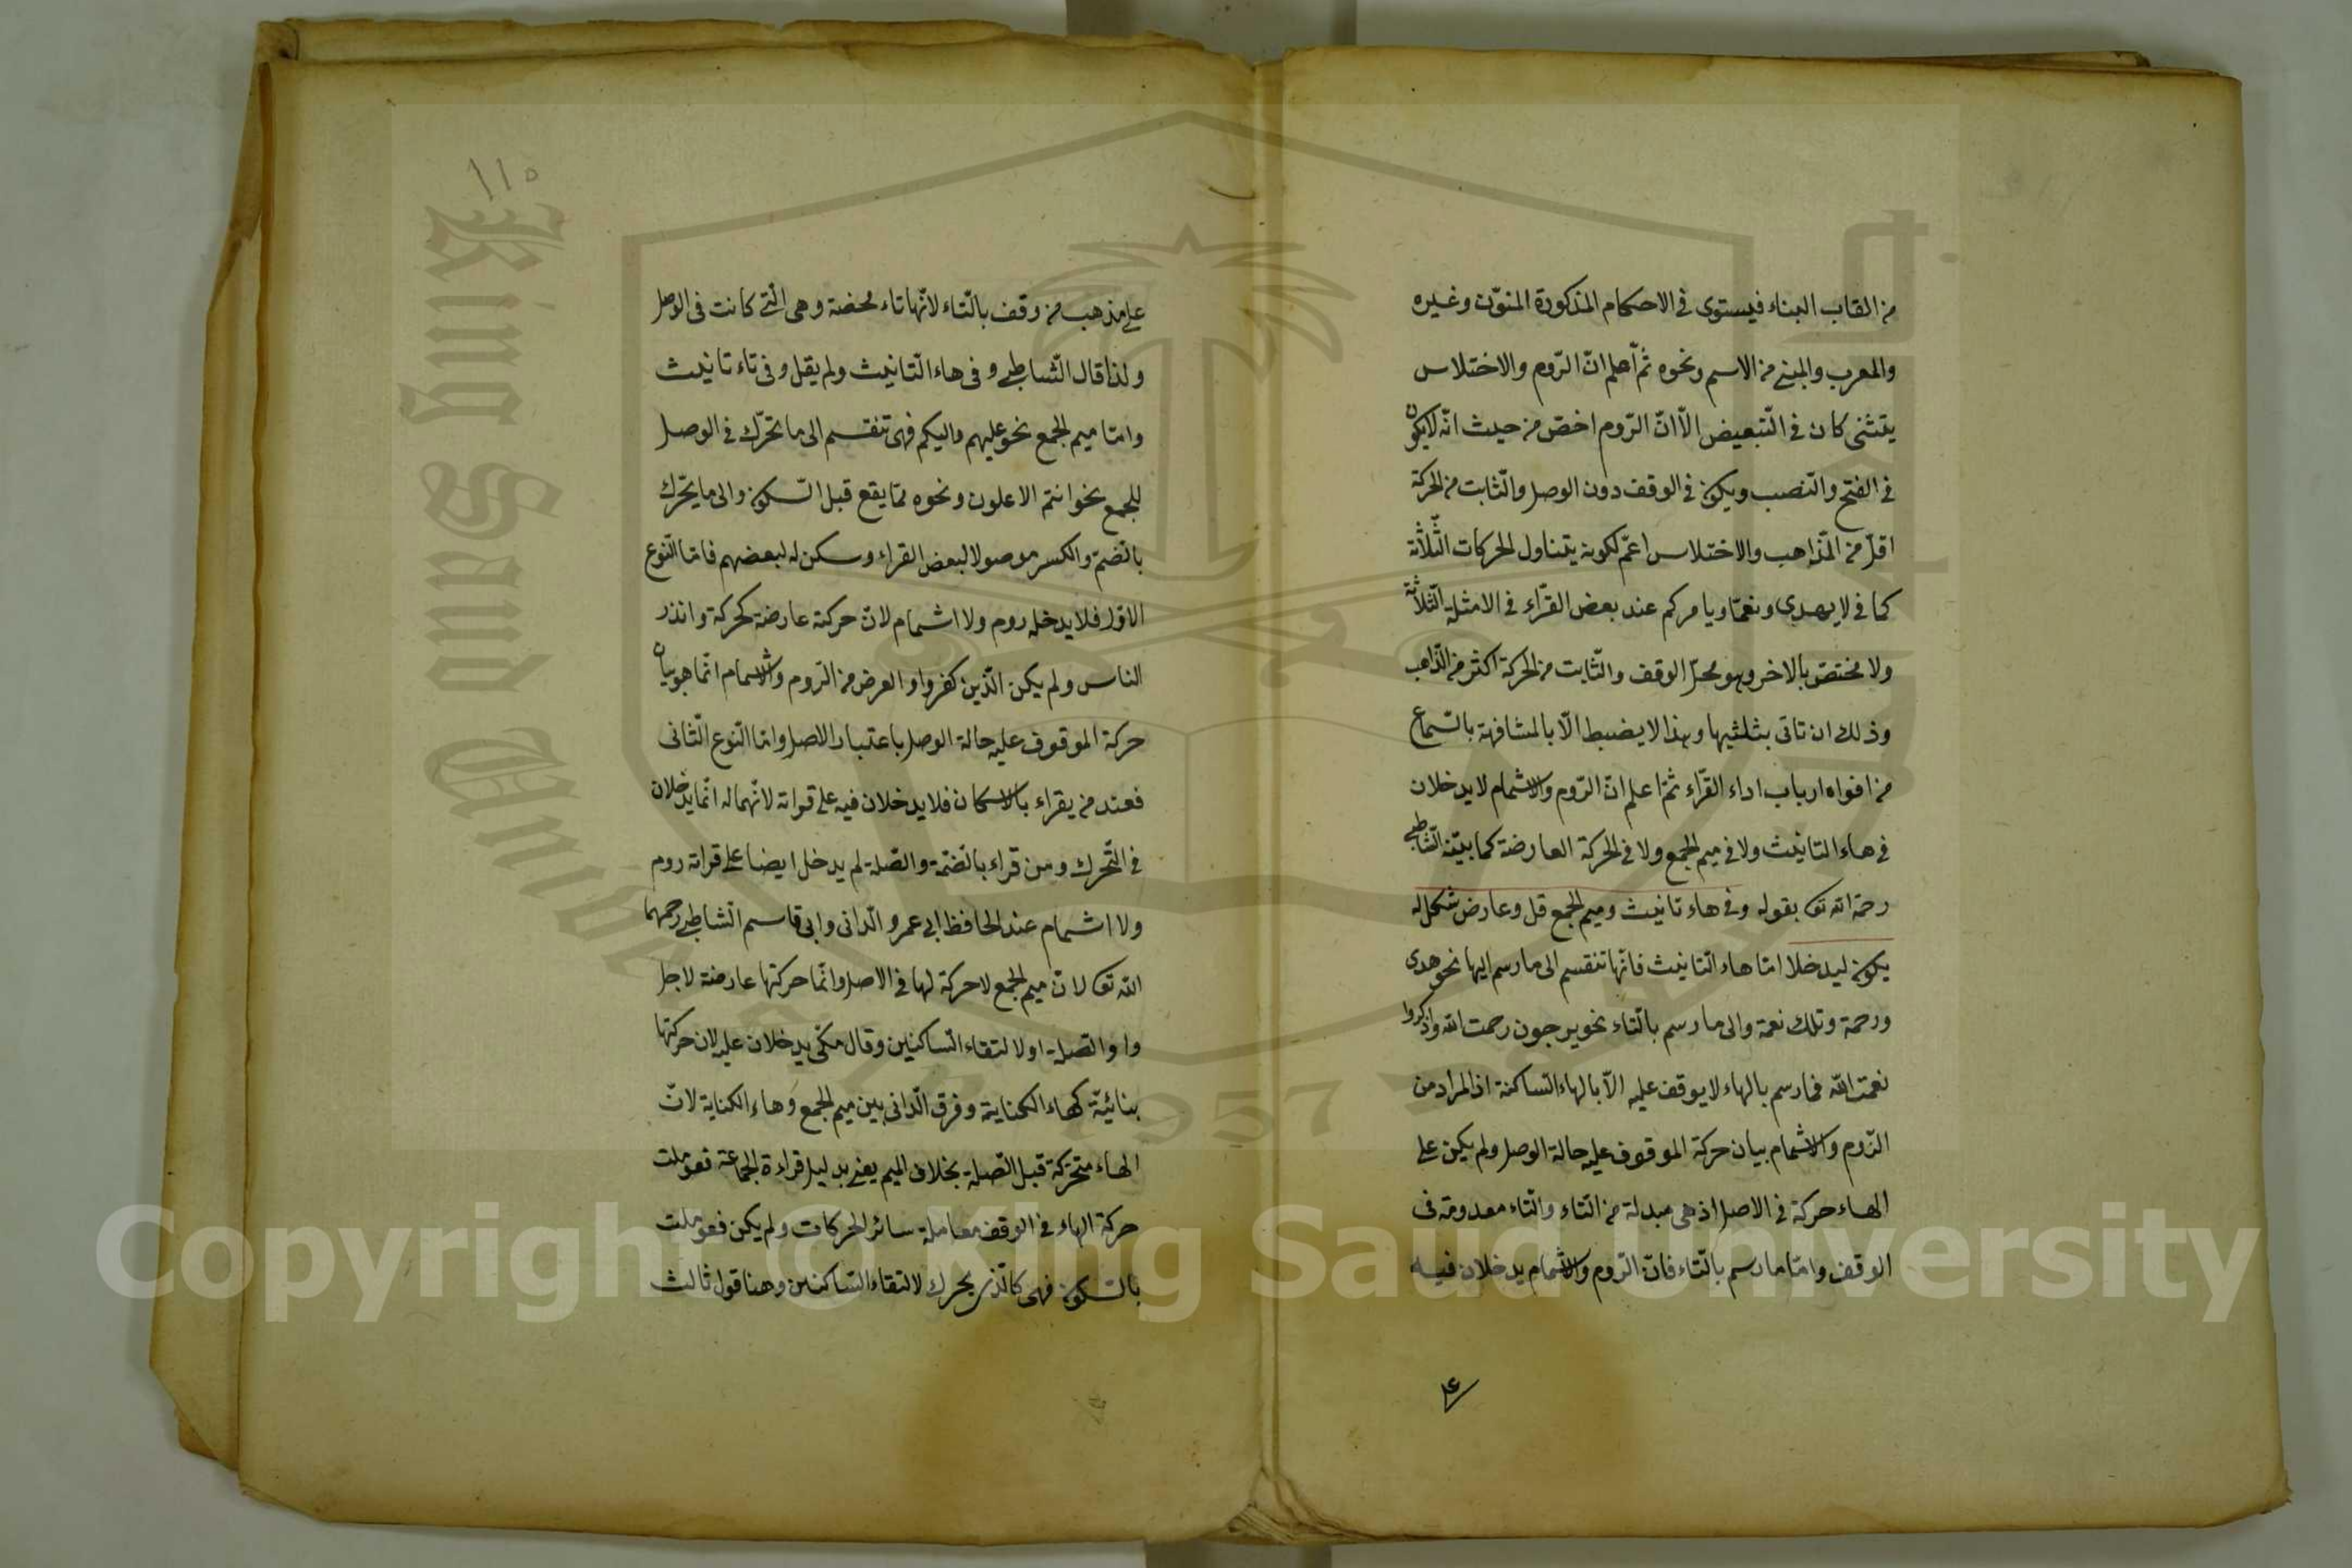 من القاب البناء فيستوى فى الاحكام المذكورة المنوّن وغيره
والمعرب والمبنى من الاسم ونحوه ثمّ اعلم انّ الرّوم والاختلاس
كان فى التّبعيض الّا انّ الرّوم اخصّ من حيث انّه لايكون
فى الفتح والنّصب ويكون فى الوقف دون الوصل والثّابت من الحركة
اقلّ من المّذاهب والاختلاس اعمّ لكونه يتناول الحركات الثّلاثة
كما فى لا يهدى ونعمّا ويامركم عند بعض القرّاء فى الامثلة الثّلاثة
ولا مختصّ بالاخر وهو محلّ الوقف والثّابت من الحركة اكثر من الذّاهب
وذلك ان تاتى بثلثيها وهذا لا يضبط الّا بالمشافهة بالسّماع
من افواه ارباب اداء القرّاء ثمّ اعلم انّ الرّوم والاشمام لا يدخلان
فى هاء التانيث ولا فى ميم الجمع ولا فى الحركة العارضة كما بيّنه الشّاطبى
رحمة الله تعـ بقوله وفى هاء تانيث وميم الجمع قل وعارض شكل له
يكون ليدخلا امّا هاء التانيث فانّها تنقسم الى ما رسم اليها نحو هدى
ورحمة وتلك نعمة والى ما رسم بالتّاء نحو يرجون رحمت الله واذكروا
نعمت الله فما رسم بالهاء لا يوقف عليه الّا بالهاء السّاكنة اذ المراد من
الرّوم والاشمام بيان حركة الموقوف عليه حالة الوصل ولم يكن على
الهاء حركة فى الاصل اذ هى مبدلة من التّاء والتّاء معدومة فى
الوقف وامّا ما رسم بالتّاء فانّ الرّوم والاشمام يدخلان فيه
على
١١٥
على مذهب من وقف بالتّاء لانّها تاء محضة وهى الّتى كانت فى الوصل
ولذا قال الشّاطبى وفى هاء التّانيث ولم يقل وفى تاء تانيث
وامّا ميم الجمع نحو عليهم واليكم فهى تنقسم الى ما تحرّك فى الوصل
للجمع نحو انتم الاعلون ونحوه ممّا يقع قبل السّكون والى ما يحّرك
بالضّم والكسر موصولا لبعض القراء وسكن له لبعضهم فامّا النّوع
الاوّل فلا يدخله روم ولا اشمام لانّ حركته عارضة كحركة وانذر
الناس ولم يكن الّذين كفروا والعرض من الرّوم والاشمام انّما هو بيان
حركة الموقوف عليه حالة الوصل باعتبار الاصل وامّا النّوع الثّانى
فعند من يقراء بالاسكان فلا يدخلان فيه على قراته لانّهما له انّما يدخلان
فى التّحرك ومن قراء بالضّمّة والصّلة لم يدخل ايضا على قراته روم
ولا اشمام عند الحافظ ابى عمرو الدّانى وابى قاسم الشّاطبى رحمهما
الله تعـ لانّ ميم الجمع لا حركة لها فى الاصل وانّما حركتها عارضة لاجل
واو الصّلة او لالتقاء السّاكنين وقال مكّى يدخلان عليه لان حركتها
بنائيّة كهاء الكناية وفرق الدّانى بين ميم الجمع وهاء الكناية لانّ
الهاء متحرّكة قبل الصّلة بخلاف الميم يعنى بدليل قراءة الجماعة فعوملت
حركة الهاء فى الوقف معاملة سائر الحركات ولم يكن فعوملت
بالسّكون فهى كالّذى يحرك لالتقاء السّاكنين وهنا قول ثالث
King Saud University
1957
Copyright © King Saud University